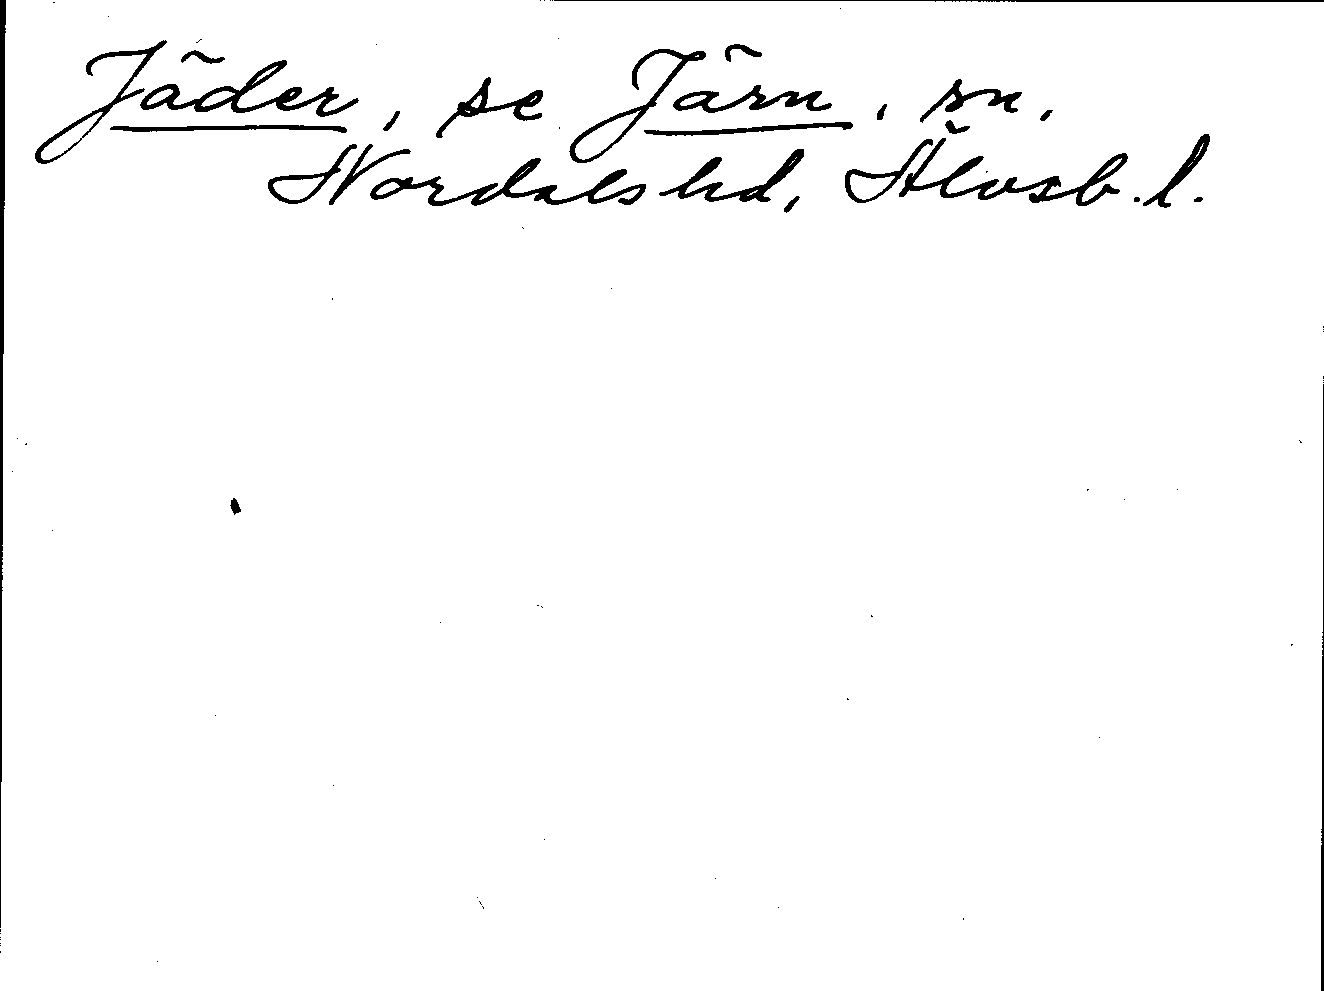 Jäder, se Järn, sn,
Nordals hd, Älvsb. l.